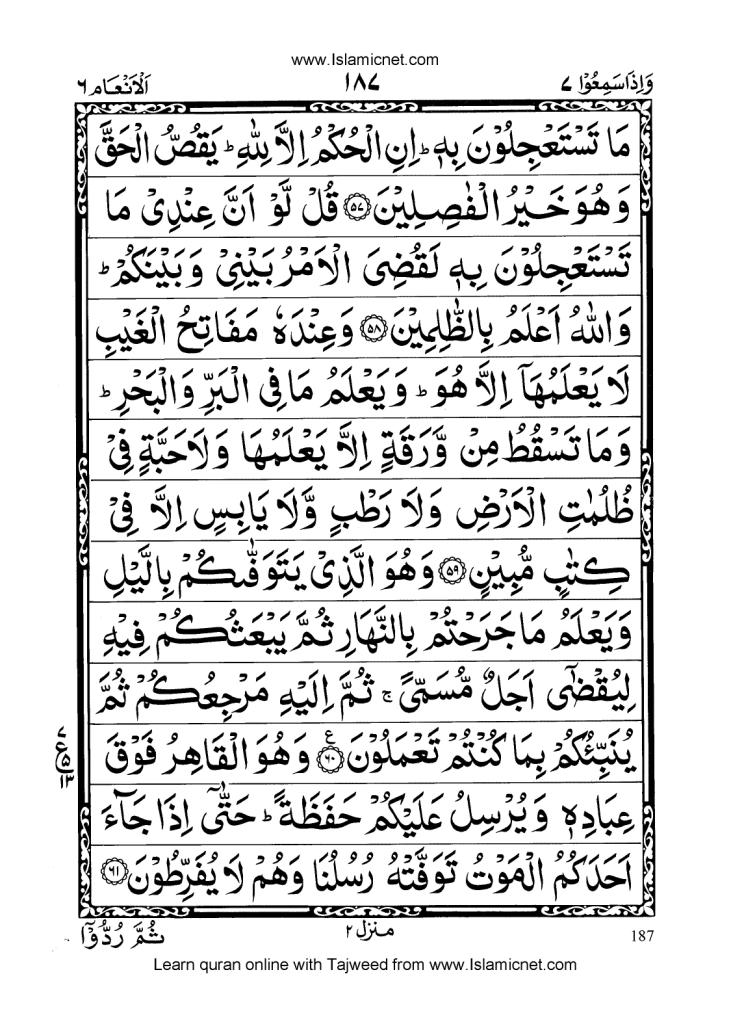 www.Islamicnet.com
وَاِذَاسَمِعُوْا ٧
١٨٧
اَلْاَنْعَام ٦
مَا تَسْتَعْجِلُوْنَ بِهٖ ؕ اِنِ الْحُكْمُ اِلَّا لِلّٰهِ ؕ يَقُصُّ الْحَقَّ
وَهُوَ خَيْرُ الْفٰصِلِيْنَ ﴿٥٧﴾ قُلْ لَّوْ اَنَّ عِنْدِىْ مَا
تَسْتَعْجِلُوْنَ بِهٖ لَقُضِىَ الْاَمْرُ بَيْنِىْ وَبَيْنَكُمْ ؕ
وَاللّٰهُ اَعْلَمُ بِالظّٰلِمِيْنَ ﴿٥٨﴾ وَعِنْدَهٗ مَفَاتِحُ الْغَيْبِ
لَا يَعْلَمُهَآ اِلَّا هُوَ ؕ وَيَعْلَمُ مَا فِى الْبَرِّ وَالْبَحْرِ ؕ
وَمَا تَسْقُطُ مِنْ وَّرَقَةٍ اِلَّا يَعْلَمُهَا وَلَا حَبَّةٍ فِىْ
ظُلُمٰتِ الْاَرْضِ وَلَا رَطْبٍ وَّلَا يَابِسٍ اِلَّا فِىْ
كِتٰبٍ مُّبِيْنٍ ﴿٥٩﴾ وَهُوَ الَّذِىْ يَتَوَفّٰىكُمْ بِالَّيْلِ
وَيَعْلَمُ مَا جَرَحْتُمْ بِالنَّهَارِ ثُمَّ يَبْعَثُكُمْ فِيْهِ
لِيُقْضٰٓى اَجَلٌ مُّسَمًّى ۚ ثُمَّ اِلَيْهِ مَرْجِعُكُمْ ثُمَّ
يُنَبِّئُكُمْ بِمَا كُنْتُمْ تَعْمَلُوْنَ ﴿٦٠﴾ ع وَهُوَ الْقَاهِرُ فَوْقَ
٧
ع ٥
١٣
عِبَادِهٖ وَيُرْسِلُ عَلَيْكُمْ حَفَظَةً ؕ حَتّٰٓى اِذَا جَآءَ
اَحَدَكُمُ الْمَوْتُ تَوَفَّتْهُ رُسُلُنَا وَهُمْ لَا يُفَرِّطُوْنَ ﴿٦١﴾
187
منزل ٢
ثُمَّ رُدُّوْٓا
Learn quran online with Tajweed from www.Islamicnet.com